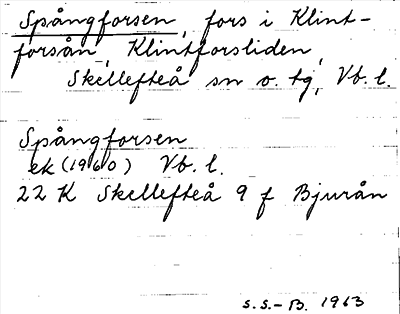 Spångforsen, fors i Klint-
forsån, Klintforsliden,
Skellefteå sn o. tg, Vb. l.
Spångforsen
ek (1960) Vb. l.
22 K Skellefteå 9 f Bjurån
S.S.-B. 1963